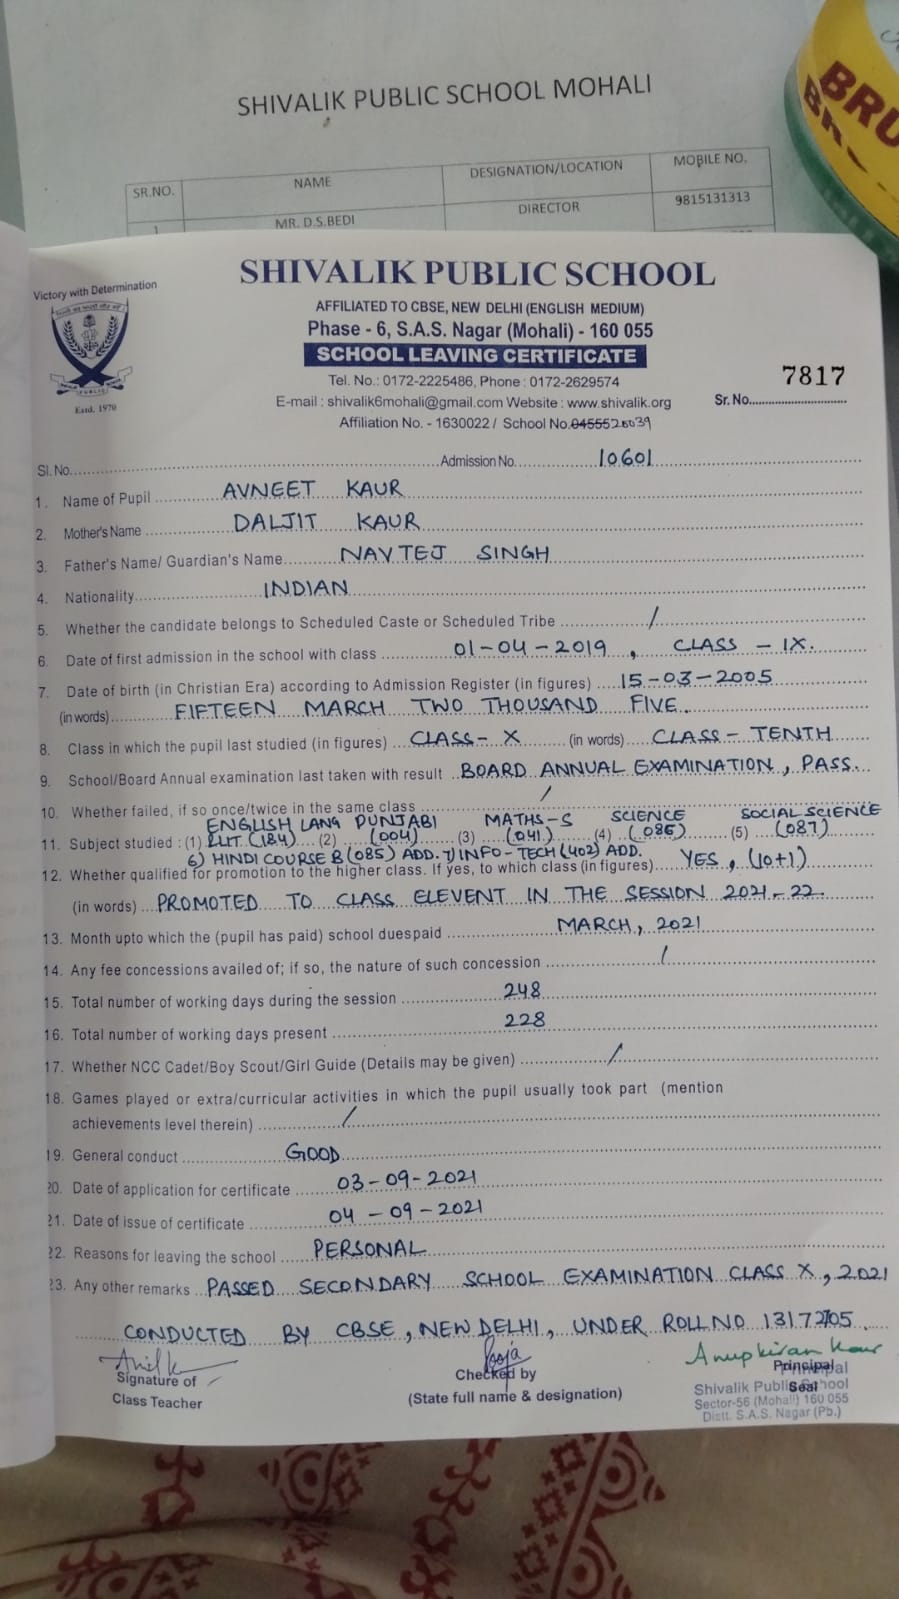 SHIVALIK PUBLIC SCHOOL MOHALI
SR.NO. NAME DESIGNATION/LOCATION MOBILE NO.
1 MR. D.S.BEDI DIRECTOR 9815131313
BRU
Victory with Determination
SHIVALIK PUBLIC SCHOOL
AFFILIATED TO CBSE, NEW DELHI (ENGLISH MEDIUM)
Phase - 6, S.A.S. Nagar (Mohali) - 160 055
SCHOOL LEAVING CERTIFICATE
Tel. No.: 0172-2225486, Phone : 0172-2629574
E-mail : shivalik6mohali@gmail.com Website : www.shivalik.org
Affiliation No. - 1630022 / School No.
Estd. 1970
7817
Sr. No.
Sl. No. Admission No. 10601
1. Name of Pupil AVNEET KAUR
2. Mother's Name DALJIT KAUR
3. Father's Name/ Guardian's Name NAVTEJ SINGH
4. Nationality INDIAN
5. Whether the candidate belongs to Scheduled Caste or Scheduled Tribe /
6. Date of first admission in the school with class 01-04-2019, CLASS - IX.
7. Date of birth (in Christian Era) according to Admission Register (in figures) 15-03-2005
(in words) FIFTEEN MARCH TWO THOUSAND FIVE.
8. Class in which the pupil last studied (in figures) CLASS- X (in words) CLASS- TENTH
9. School/Board Annual examination last taken with result BOARD ANNUAL EXAMINATION, PASS.
10. Whether failed, if so once/twice in the same class /
ENGLISH LANG PUNJABI MATHS-S SCIENCE SOCIAL SCIENCE
11. Subject studied : (1) LIT. (184) (2) (004) (3) (041) (4) (086) (5) (087)
6) HINDI COURSE B (085) ADD. 7) INFO-TECH (402) ADD.
12. Whether qualified for promotion to the higher class. If yes, to which class (in figures) YES, (10+1)
(in words) PROMOTED TO CLASS ELEVENT IN THE SESSION 2021-22.
13. Month upto which the (pupil has paid) school duespaid MARCH, 2021
14. Any fee concessions availed of; if so, the nature of such concession /
15. Total number of working days during the session 248
16. Total number of working days present 228
17. Whether NCC Cadet/Boy Scout/Girl Guide (Details may be given) /
18. Games played or extra/curricular activities in which the pupil usually took part (mention
achievements level therein) /
19. General conduct GOOD
20. Date of application for certificate 03-09-2021
21. Date of issue of certificate 04-09-2021
22. Reasons for leaving the school PERSONAL
23. Any other remarks PASSED SECONDARY SCHOOL EXAMINATION CLASS X, 2021
CONDUCTED BY CBSE, NEW DELHI, UNDER ROLL NO
Anil k Pooja Anupkiran Kaur
Signature of Checked by Principal
Class Teacher (State full name & designation) Seal
Principal
Shivalik Public School
Sector-56 (Mohali) 160 055
Distt. S.A.S. Nagar (Pb.)